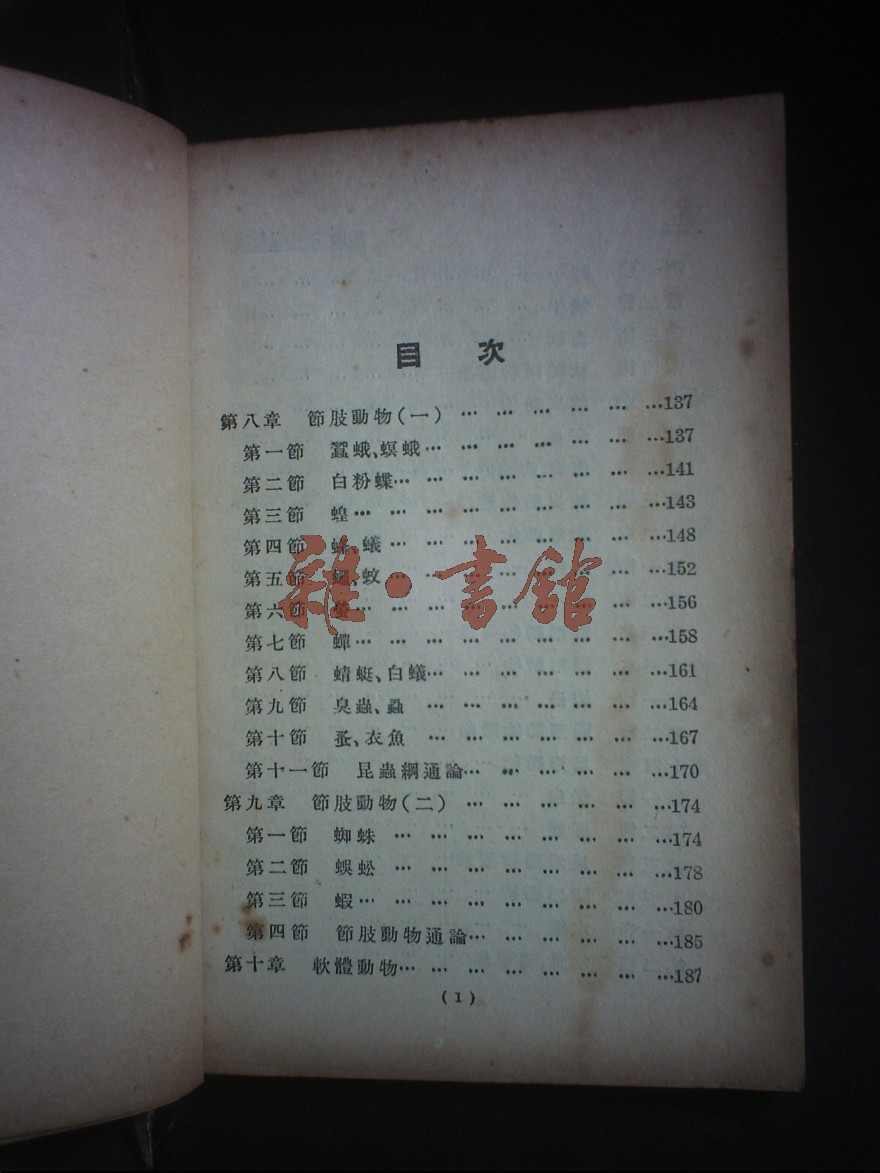 目 次
第八章 節肢動物(一) … … … … … … …137
第一節 蠶蛾、螟蛾… … … … … … … …137
第二節 白粉蝶… … … … … … … … …141
第三節 蝗… … … … … … … … … …143
第四節 蜂、蟻… … … … … … … … …148
第五節 蠅、蚊… … … … … … … … …152
第六節 螢… … … … … … … … … …156
第七節 蟬… … … … … … … … … …158
第八節 蜻蜓、白蟻… … … … … … … …161
第九節 臭蟲、蝨 … … … … … … … …164
第十節 蚤、衣魚 … … … … … … … …167
第十一節 昆蟲綱通論… … … … … … …170
第九章 節肢動物(二) … … … … … … …174
第一節 蜘蛛 … … … … … … … … …174
第二節 蜈蚣 … … … … … … … … …178
第三節 蝦… … … … … … … … … …180
第四節 節肢動物通論… … … … … … …185
第十章 軟體動物… … … … … … … … …187
(1)
雜·書館